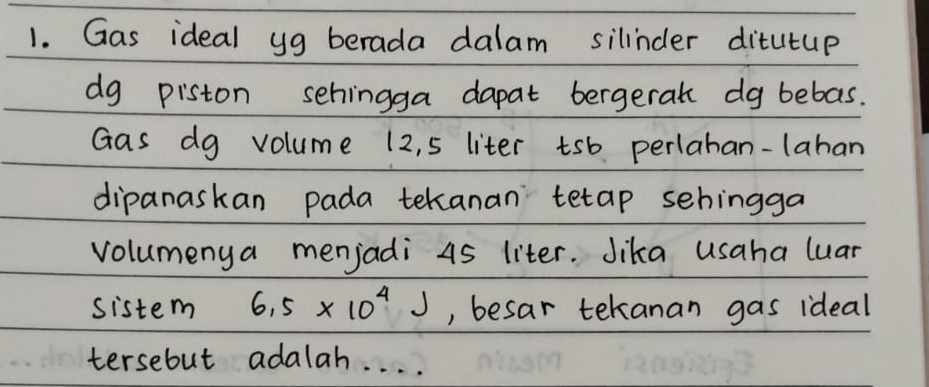 1. Gas ideal yg berada dalam silinder ditutup
dg piston sehingga dapat bergerak dg bebas.
Gas dg volume 12,5 liter tsb perlahan-lahan
dipanaskan pada tekanan tetap sehingga
volumenya menjadi 45 liter. Jika usaha luar
sistem 6,5 x 10⁴ J, besar tekanan gas ideal
tersebut adalah....